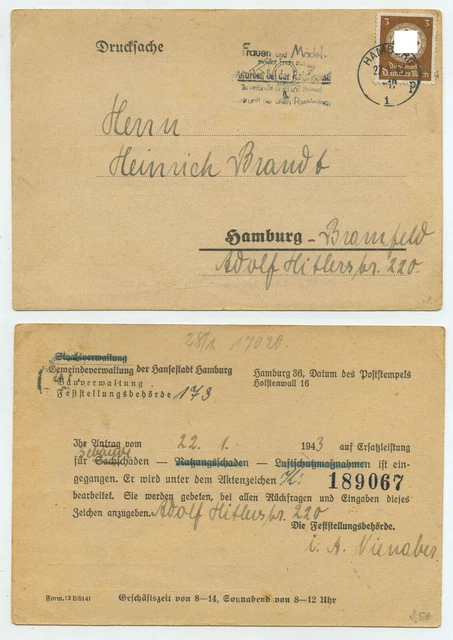 Drucksache
Frauen und Mädel
Reichspost
HAMBURG
1
3 3
Deutsches Reich
Herrn
Heinrich Brandt
Hamburg - Bramfeld
Adolf Hitlerstr. 220.
28/1. 17020.
Staatsverwaltung
Gemeindeverwaltung der Hansestadt Hamburg
Bauverwaltung
Feststellungsbehörde 173
Hamburg 36, Datum des Poststempels
Holstenwall 16
Ihr Antrag vom 22. 1. 1943 auf Ersatzleistung
Gebäude
für Sachschäden — Nutzungsschaden — Luftschutzmaßnahmen ist ein-
gegangen. Er wird unter dem Aktenzeichen 189067
bearbeitet. Sie werden gebeten, bei allen Rückfragen und Eingaben dieses
Zeichen anzugeben. Adolf Hitlerstr 220
Die Feststellungsbehörde.
i. A. Nienaber
Form. 13 E/8141
Geschäftszeit von 8—14, Sonnabend von 8—12 Uhr